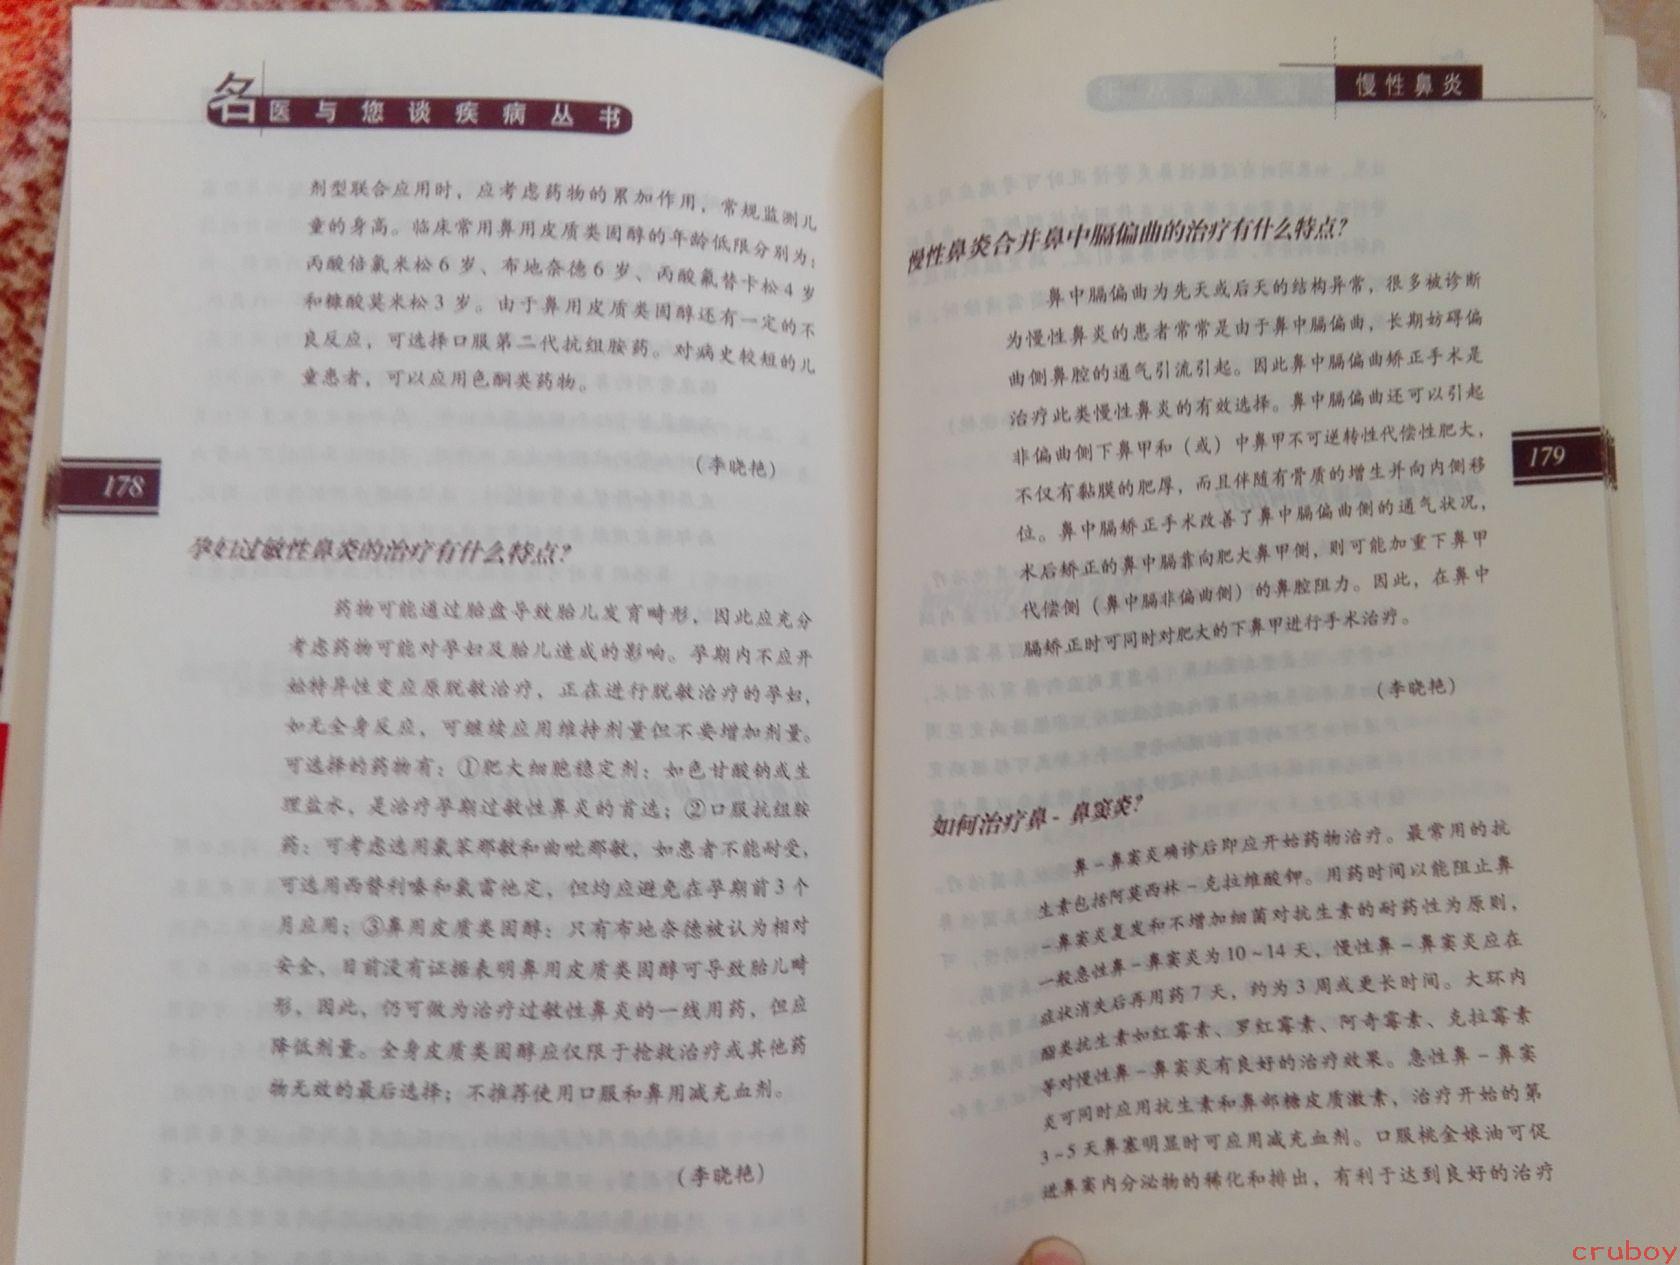 名医与您谈疾病丛书
剂型联合应用时，应考虑药物的累加作用，常规监测儿
童的身高。临床常用鼻用皮质类固醇的年龄低限分别为：
丙酸倍氯米松6岁、布地奈德6岁、丙酸氟替卡松4岁
和糠酸莫米松3岁。由于鼻用皮质类固醇还有一定的不
良反应，可选择口服第二代抗组胺药。对病史较短的儿
童患者，可以应用色酮类药物。
（李晓艳）
178
孕妇过敏性鼻炎的治疗有什么特点？
药物可能通过胎盘导致胎儿发育畸形，因此应充分
考虑药物可能对孕妇及胎儿造成的影响。孕期内不应开
始特异性变应原脱敏治疗，正在进行脱敏治疗的孕妇，
如无全身反应，可继续应用维持剂量但不要增加剂量。
可选择的药物有：①肥大细胞稳定剂：如色甘酸钠或生
理盐水，是治疗孕期过敏性鼻炎的首选；②口服抗组胺
药：可考虑选用氯苯那敏和曲吡那敏，如患者不能耐受，
可选用西替利嗪和氯雷他定，但均应避免在孕期前3个
月应用；③鼻用皮质类固醇：只有布地奈德被认为相对
安全，目前没有证据表明鼻用皮质类固醇可导致胎儿畸
形，因此，仍可做为治疗过敏性鼻炎的一线用药，但应
降低剂量。全身皮质类固醇应仅限于抢救治疗或其他药
物无效的最后选择；不推荐使用口服和鼻用减充血剂。
（李晓艳）
慢性鼻炎
慢性鼻炎合并鼻中膈偏曲的治疗有什么特点？
鼻中膈偏曲为先天或后天的结构异常，很多被诊断
为慢性鼻炎的患者常常是由于鼻中膈偏曲，长期妨碍偏
曲侧鼻腔的通气引流引起。因此鼻中膈偏曲矫正手术是
治疗此类慢性鼻炎的有效选择。鼻中膈偏曲还可以引起
非偏曲侧下鼻甲和（或）中鼻甲不可逆转性代偿性肥大，
不仅有黏膜的肥厚，而且伴随有骨质的增生并向内侧移
位。鼻中膈矫正手术改善了鼻中膈偏曲侧的通气状况，
术后矫正的鼻中膈靠向肥大鼻甲侧，则可能加重下鼻甲
代偿侧（鼻中膈非偏曲侧）的鼻腔阻力。因此，在鼻中
膈矫正时可同时对肥大的下鼻甲进行手术治疗。
（李晓艳）
179
如何治疗鼻-鼻窦炎？
鼻-鼻窦炎确诊后即应开始药物治疗。最常用的抗
生素包括阿莫西林-克拉维酸钾。用药时间以能阻止鼻
-鼻窦炎复发和不增加细菌对抗生素的耐药性为原则，
一般急性鼻-鼻窦炎为10~14天，慢性鼻-鼻窦炎应在
症状消失后再用药7天，约为3周或更长时间。大环内
酯类抗生素如红霉素、罗红霉素、阿奇霉素、克拉霉素
等对慢性鼻-鼻窦炎有良好的治疗效果。急性鼻-鼻窦
炎可同时应用抗生素和鼻部糖皮质激素，治疗开始的第
3~5天鼻塞明显时可应用减充血剂。口服桃金娘油可促
进鼻窦内分泌物的稀化和排出，有利于达到良好的治疗
cruboy